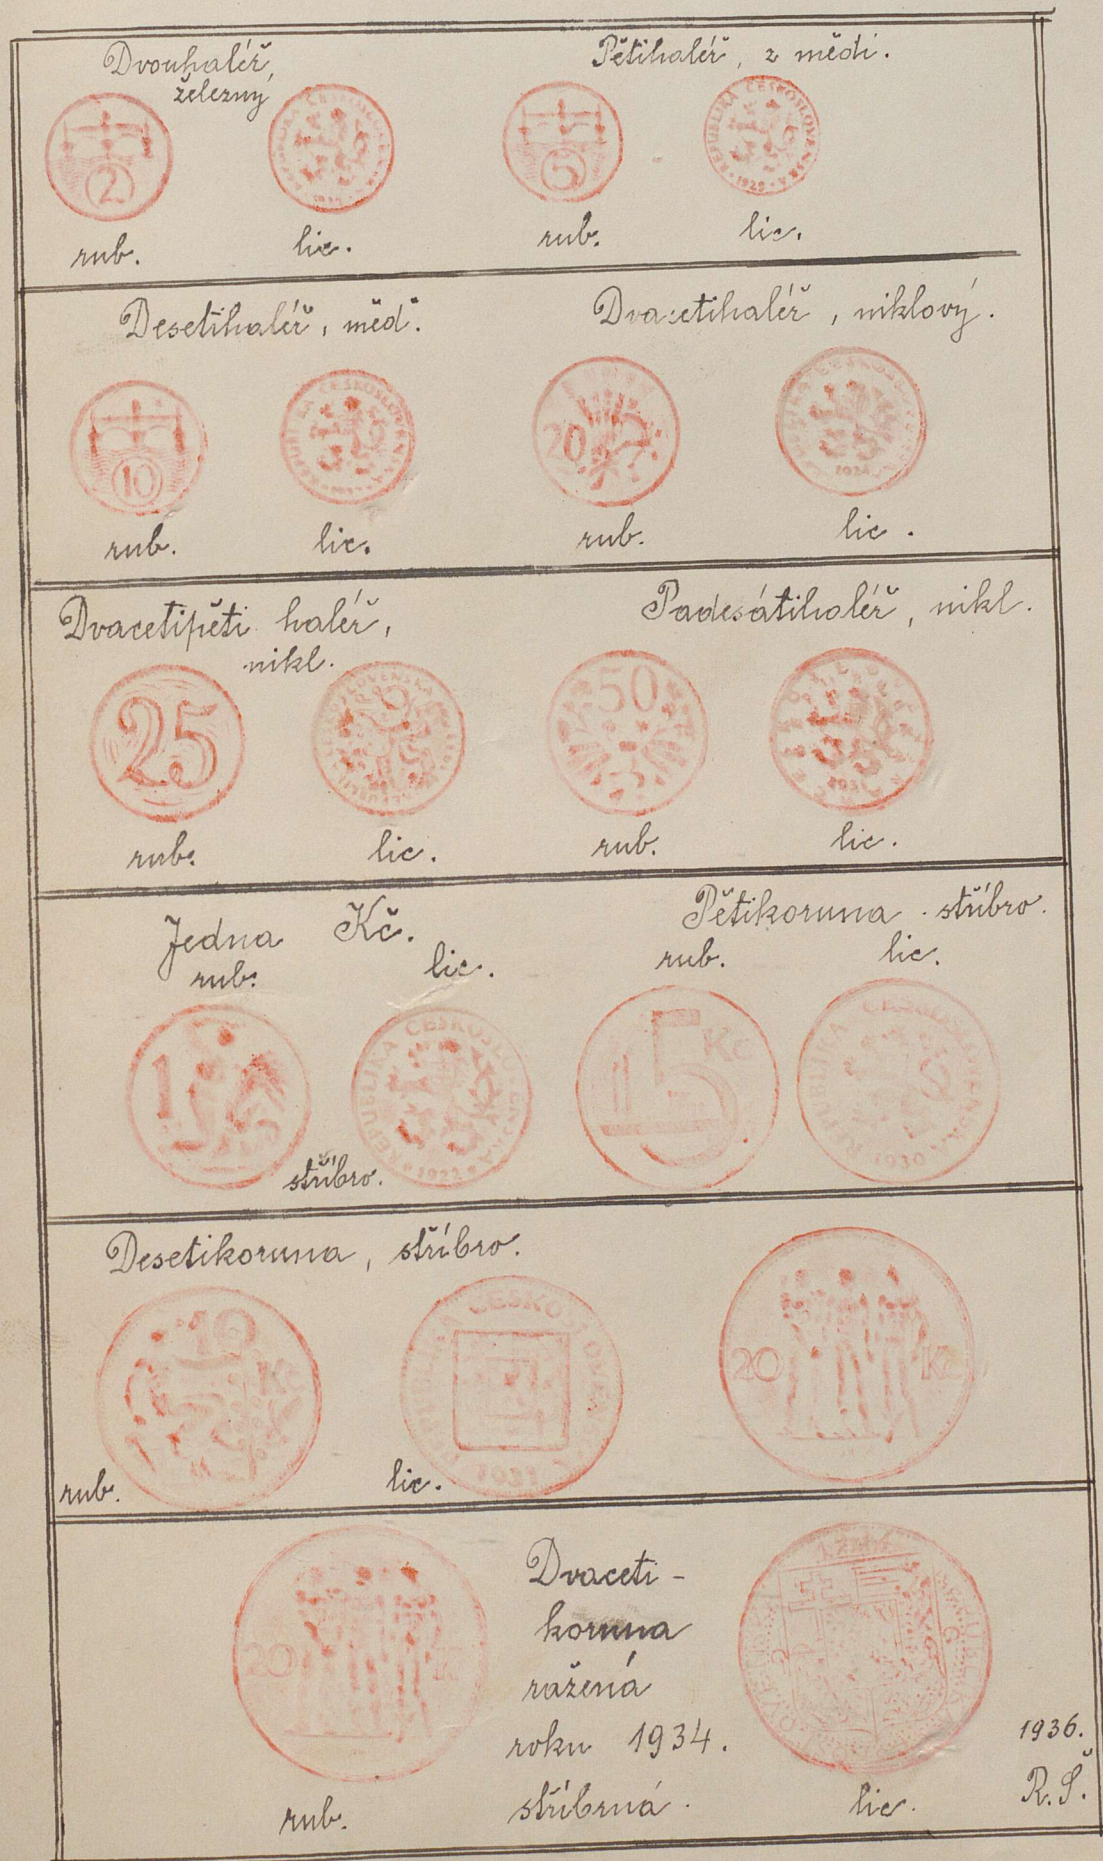 Dvouhaléř,
železný
Pětihaléř, z mědi.
2
5
REPUBLIKA ČESKOSLOVENSKÁ
1925
rub.
lic.
rub.
lic.
Desetihaléř, měď.
Dvacetihaléř, niklový.
10
REPUBLIKA ČESKOSLOVENSKÁ
20
rub.
lic.
rub.
lic.
Dvacetipěti haléř,
nikl.
Padesátihaléř, nikl.
25
50
rub.
lic.
rub.
lic.
Jedna Kč.
rub.
lic.
Pětikoruna. stříbro.
rub.
lic.
1
REPUBLIKA ČESKOSLOVENSKÁ
1922
5 Kč
REPUBLIKA ČESKOSLOVENSKÁ
1930
stříbro.
Desetikoruna, stříbro.
10
REPUBLIKA ČESKOSLOVENSKÁ
1931
20 Kč
rub.
lic.
20
Dvaceti-
koruna
ražená
roku 1934.
stříbrná.
rub.
lic.
1936.
R.Š.